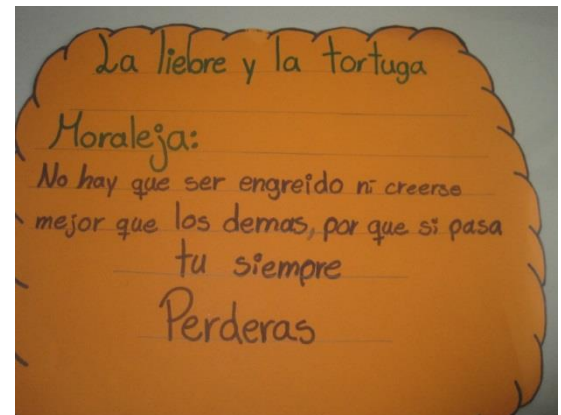 La liebre y la tortuga
Moraleja:
No hay que ser engreido ni creerse
mejor que los demas, por que si pasa
tu siempre
Perderas